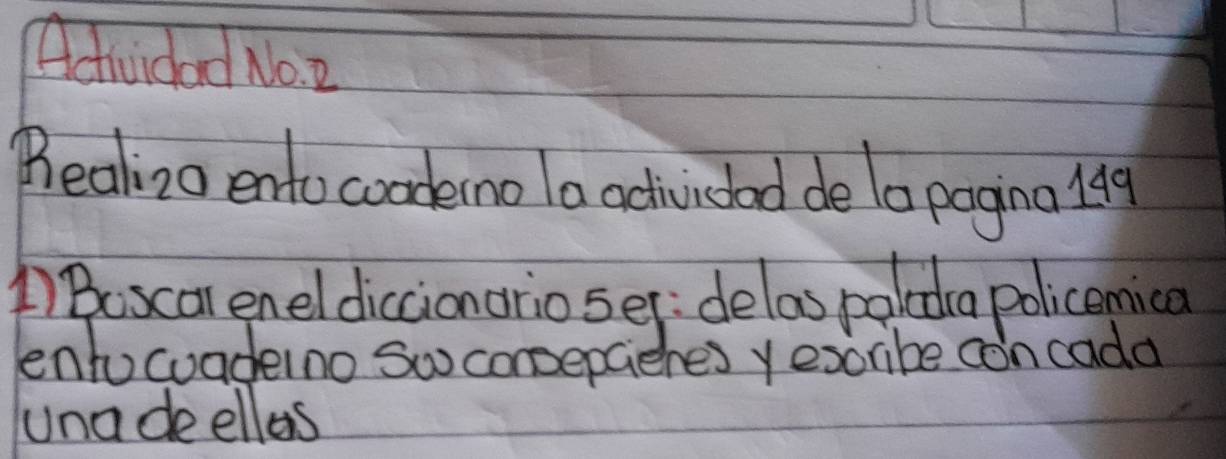 Actividad No.2
Realiza en tu coaderno la actividad de la pagina 149
1) Buscar en el diccionario ser: de las palabra policemica
en tu cuaderno sus consepciones y escribe con cada
una de ellas